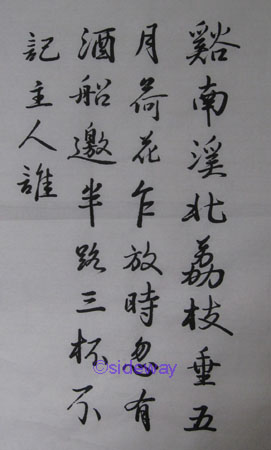 谿南溪北荔枝垂五
月荷花乍放時忽有
酒船邀半路三杯不
記主人誰
©sideway